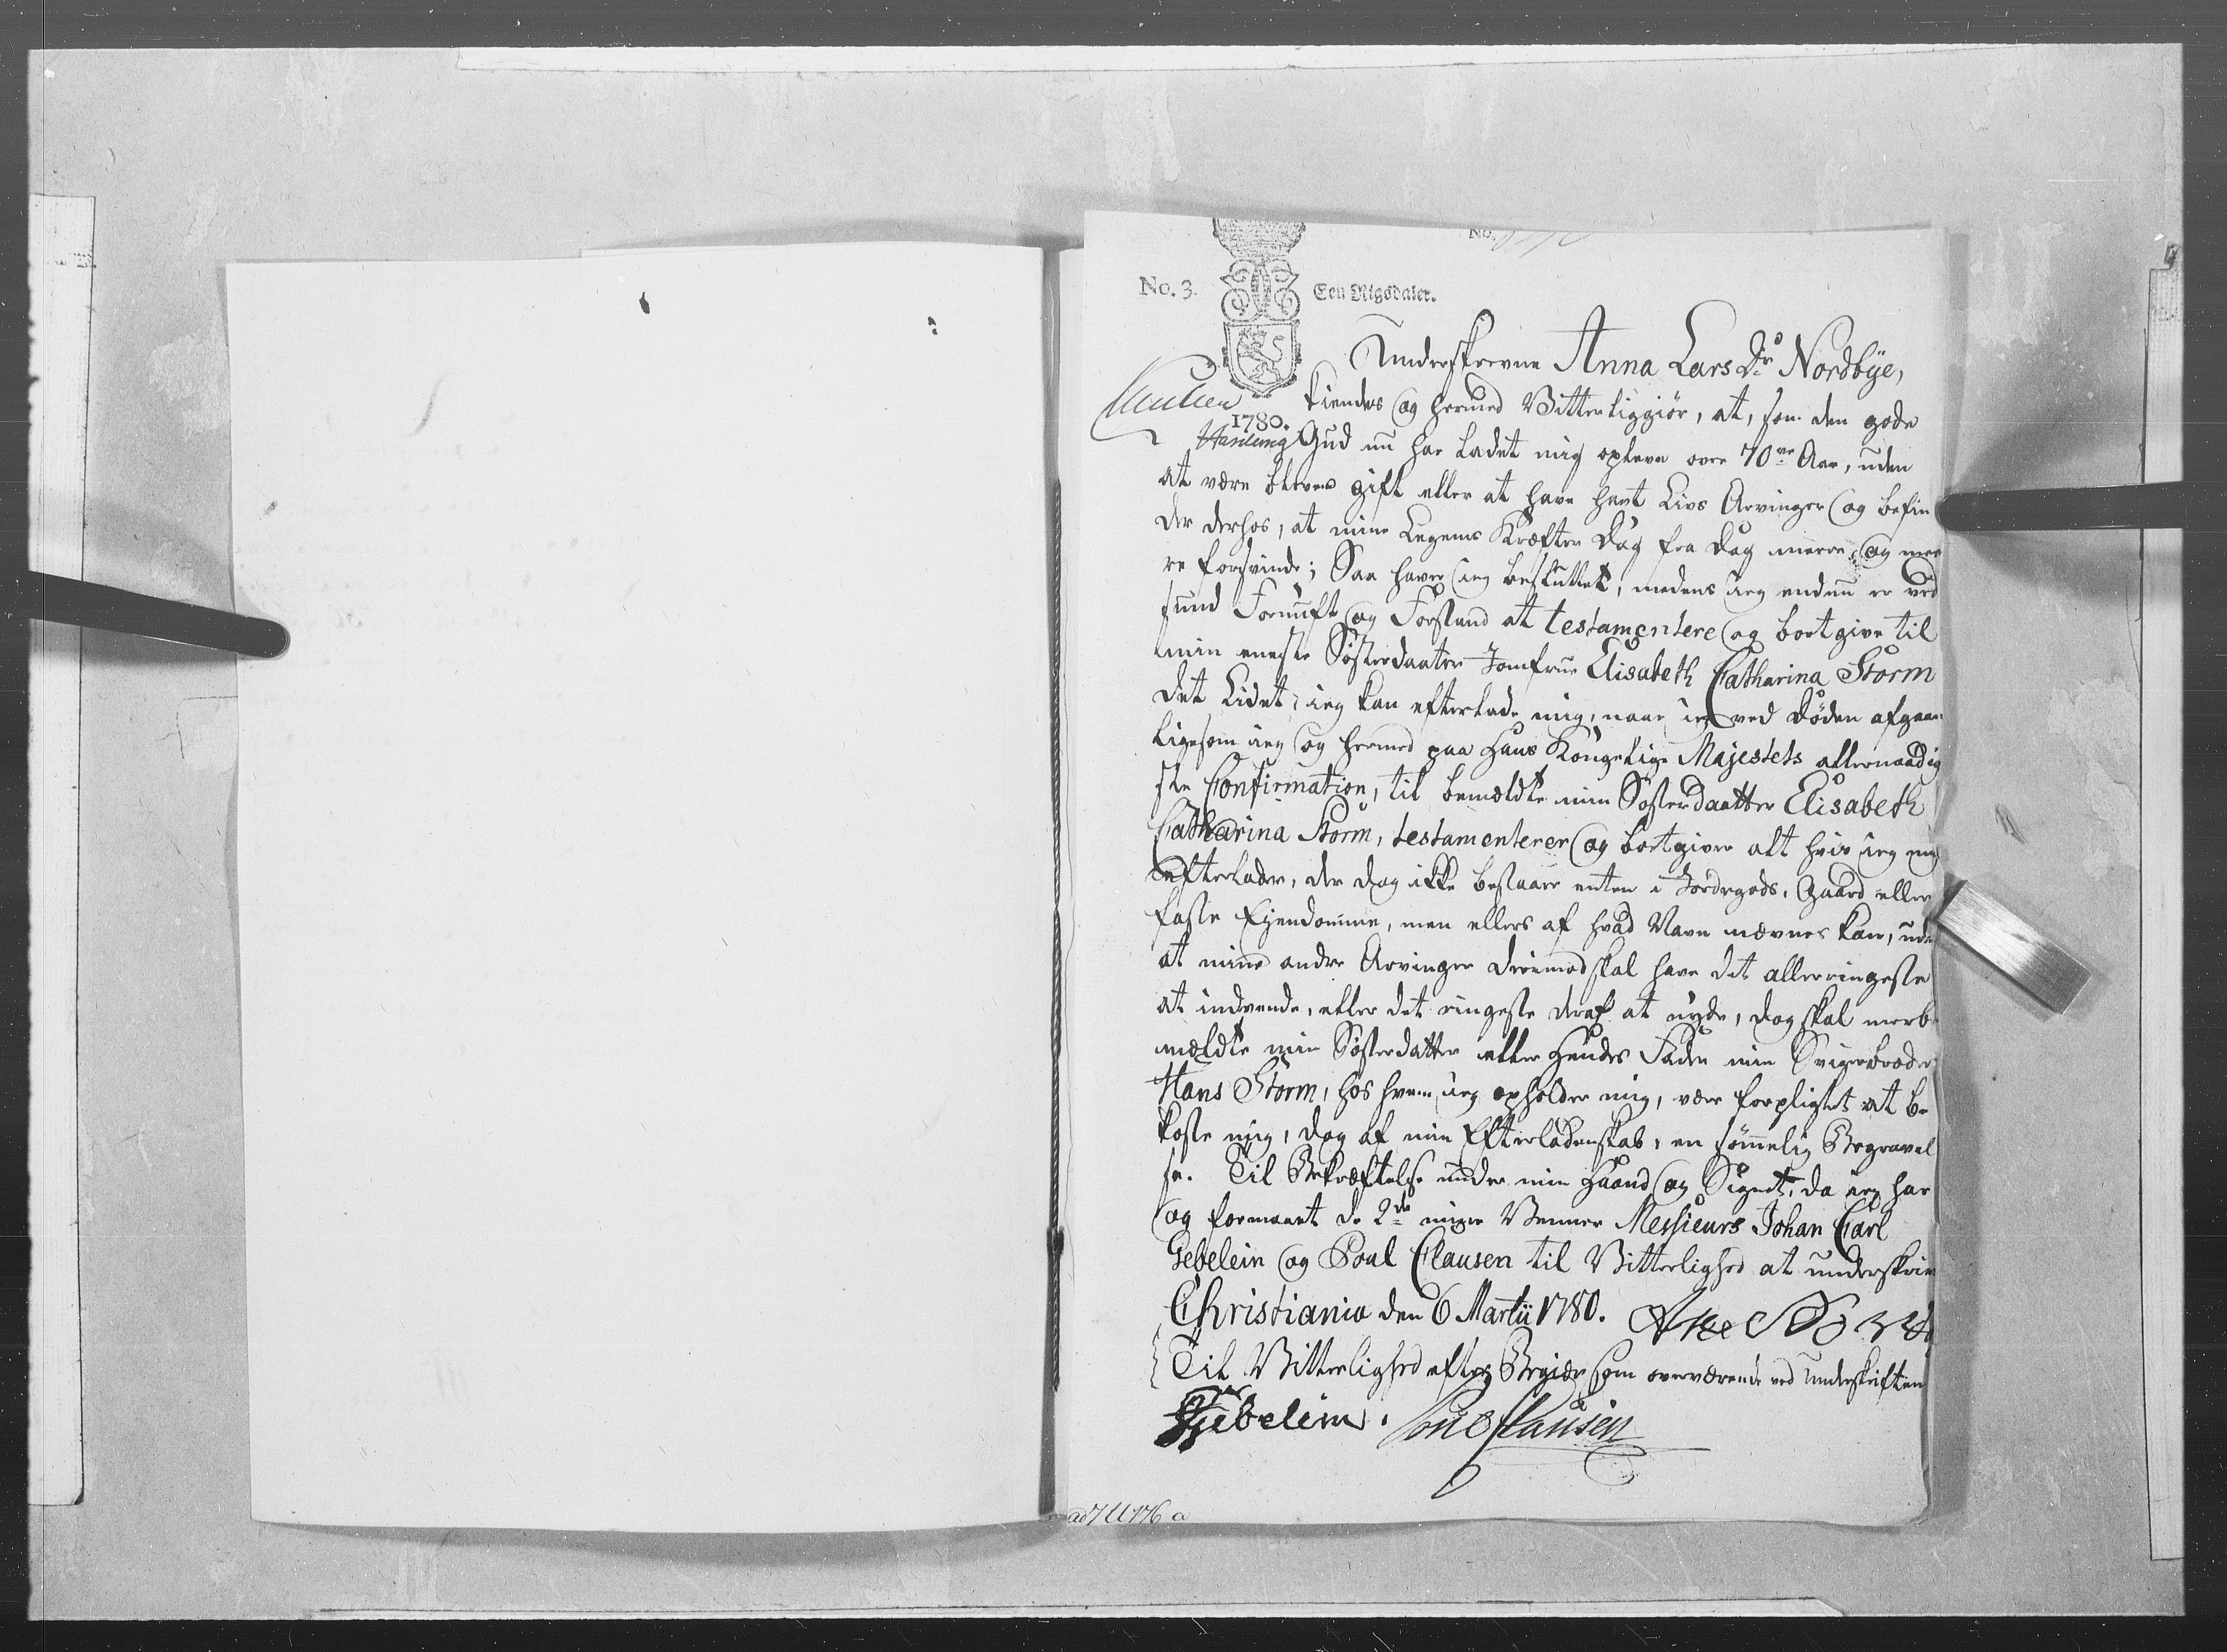 No. 3.
Een Rigsdaler.
1780.
Underskrevne Anna Lars Dr Nordbÿe,
kiendes og hermed Vitterliggiör, at, som den gode
Gud nu har ladet mig opleve over 70ve Aar, uden
at være bleven gift eller at have havt Livs Arvinger og befin
der derhos, at mine Legems Kræfter Dag fra Dag meere og mee
re forsvinde; Saa haver ieg besluttet, medens ieg endnu er ved
sund Fornuft og Forstand at testamentere og bortgive til
min eneste Södsterdaatter Jomfrue Elisabeth Catharina Storm
det Lidet, ieg kan efterlade mig, naar ieg ved Döden afgaar
ligesom ieg og hermed paa Hans Kongelige Majestets allernaadig
ste Confirmation, til bemældte min Sösterdaatter Elisabeth
Catharina Storm, testamenterer og bortgiver alt hvis ieg mig
efterlader, der dog ikke bestaaer enten i Jordegods, Gaard eller
faste Ejendomme, men ellers af hvad Navn nævnes kan, uden
at mine andre Arvinger derimod skal have det allerringeste
at indvende, eller det ringeste deraf at nyde, dog skal meerbe
mældte min Sösterdatter eller Hendes Fader min Svigerbroder
Hans Storm, hos hvem ieg opholder mig, være forpligtet at be
koste mig, dog af min Efterladenskab, en sömmelig Begravel
se. Til Bekræftelse under min Haand og Signet, da ieg har
og formaaet de 2de mine Venner Messieurs Johan Carl
Gebelein og Poul Clausen til Vitterlighed at underskrive
Christiania den 6 Martii 1780.
Til Vitterlighed efter Begiær som overværende ved Underskriften
Gebelein. Poul Clausen
ad 7 U 176 a